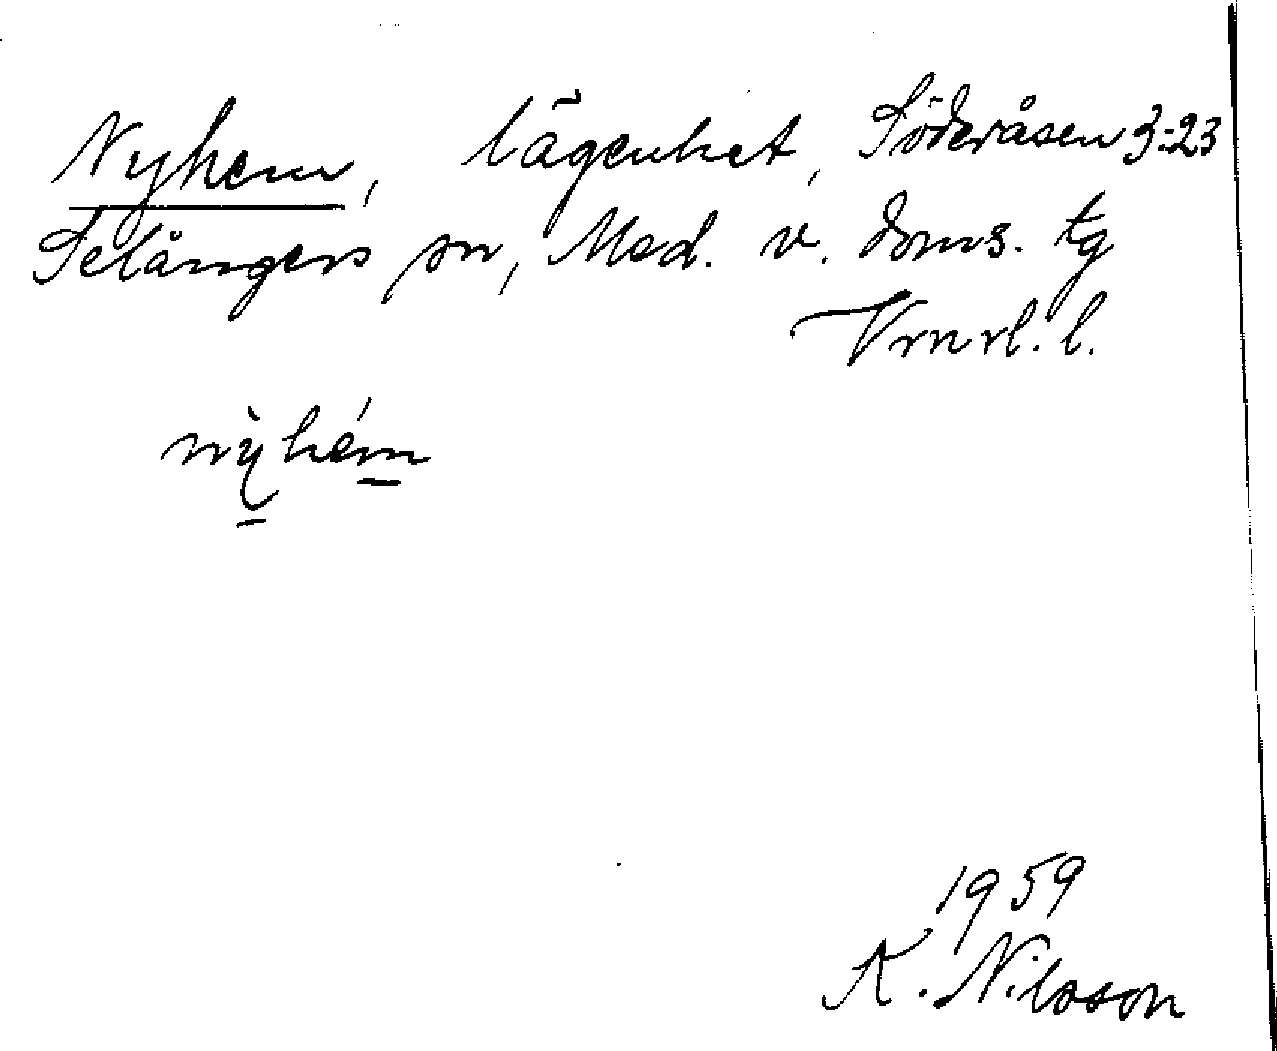 Nyhem, lägenhet, Söderåsen 3:23
Selångers sn, Med. v. doms. tg
Vrnrl. l.
nỳhém
1959
K. Nilsson